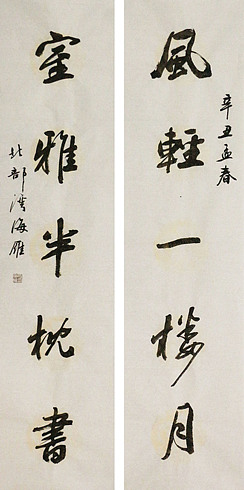 風輕一楼月
辛丑孟春
室雅半枕書
北部湾海雁